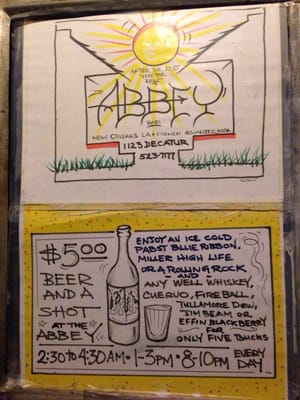 AFTER THE FEST
THE ABBEY
BAR
NEW ORLEANS LA • FRENCH QUARTER, NOLA
1123 DECATUR
523-7177
$5.00
BEER
AND A
SHOT
AT THE
ABBEY
ENJOY AN ICE COLD
PABST BLUE RIBBON,
MILLER HIGH LIFE
OR A ROLLING ROCK
AND
ANY WELL WHISKEY,
CUERVO, FIREBALL,
TULLAMORE DEW,
JIM BEAM OR
EFFIN BLACKBERRY
FOR
ONLY FIVE BUCKS
2:30 to 4:30 AM • 1-3 PM • 8-10 PM EVERY DAY